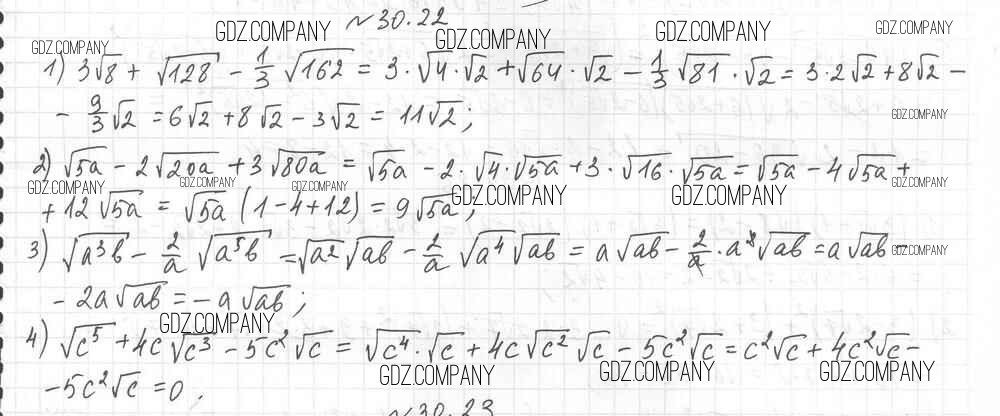 №30.22
GDZ.COMPANY GDZ.COMPANY GDZ.COMPANY GDZ.COMPANY
GDZ.COMPANY
1) 3√8 + √128 - 1/3 √162 = 3·√4·√2 + √64·√2 - 1/3 √81·√2 = 3·2√2 + 8√2 -
- 9/3 √2 = 6√2 + 8√2 - 3√2 = 11√2;
GDZ.COMPANY
2) √5a - 2√20a + 3√80a = √5a - 2·√4·√5a + 3·√16·√5a = √5a - 4√5a +
GDZ.COMPANY GDZ.COMPANY GDZ.COMPANY GDZ.COMPANY GDZ.COMPANY GDZ.COMPANY
+ 12√5a = √5a (1-4+12) = 9√5a;
3) √a³b - 2/a √a⁵b = √a² √ab - 2/a √a⁴ √ab = a√ab - 2/a · a² √ab = a√ab -
GDZ.COMPANY
- 2a√ab = -a√ab;
GDZ.COMPANY
4) √c⁵ + 4c√c³ - 5c²√c = √c⁴·√c + 4c√c² √c - 5c²√c = c²√c + 4c²√c -
GDZ.COMPANY GDZ.COMPANY GDZ.COMPANY
- 5c²√c = 0.
№30.23